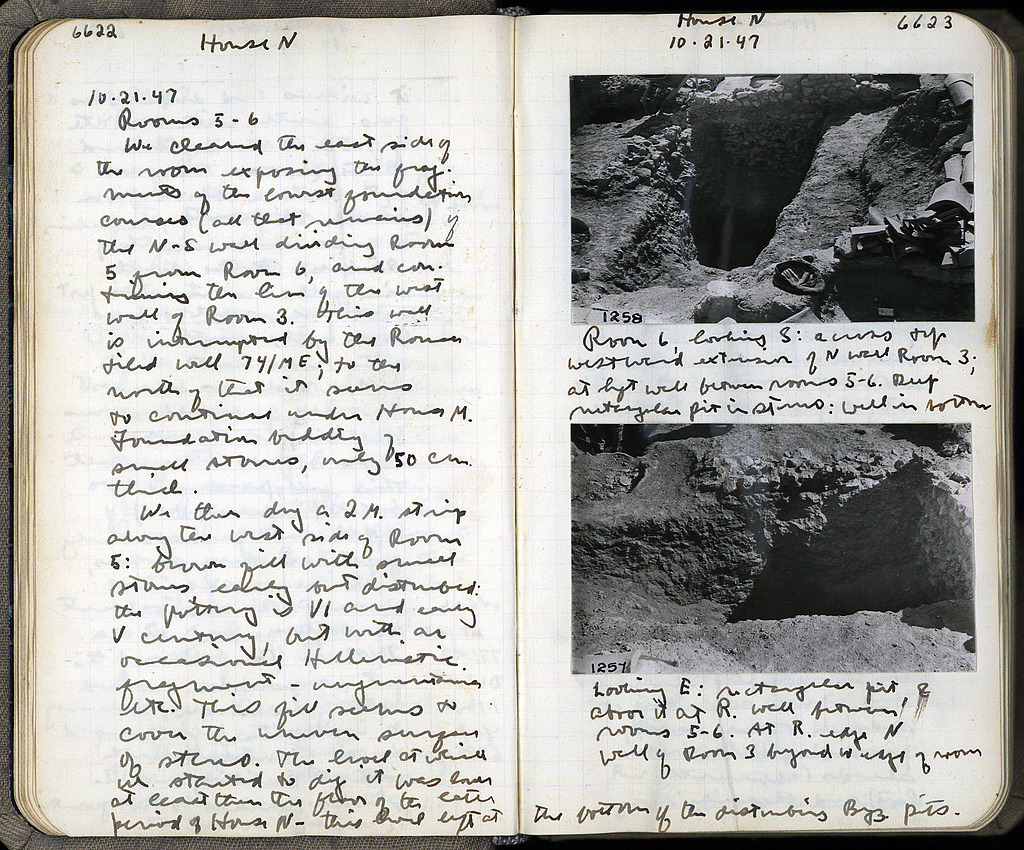 6622
House N
10.21.47
Rooms 5-6
We cleared the east side of
the room exposing the frag-
ments of the lowest foundation
courses (all that remains) of
the N-S wall dividing Room
5 from Room 6, and con-
tinuing the line of the west
wall of Room 3. This wall
is interrupted by the Roman
tiled well 74/ME; to the
north of that it seems
to continue under House M.
Foundation bedding of
small stones, only 50 cm.
thick.
We then dug a 2 M. strip
along the west side of Room
5: brown fill with small
stones, early but disturbed:
the pottery is VI and early
V century, but with an
occasional Hellenistic
fragment -
etc. This fill seems to
cover the uneven surface
of stereo. The level at which
we started to dig it was lower
at least than the floor of the later
period of House N - this level left at
6623
House N
10.21.47
1258
Room 6 looking S: across top
westward extension of N wall Room 3;
at left wall between rooms 5-6. Deep
rectangular pit in stereo: well in bottom
1257
Looking E: rectangular pit, &
above it at R. wall between
rooms 5-6. At R. edge N
wall of Room 3 beyond W edge of room
the bottom of the disturbing Byz. pits.